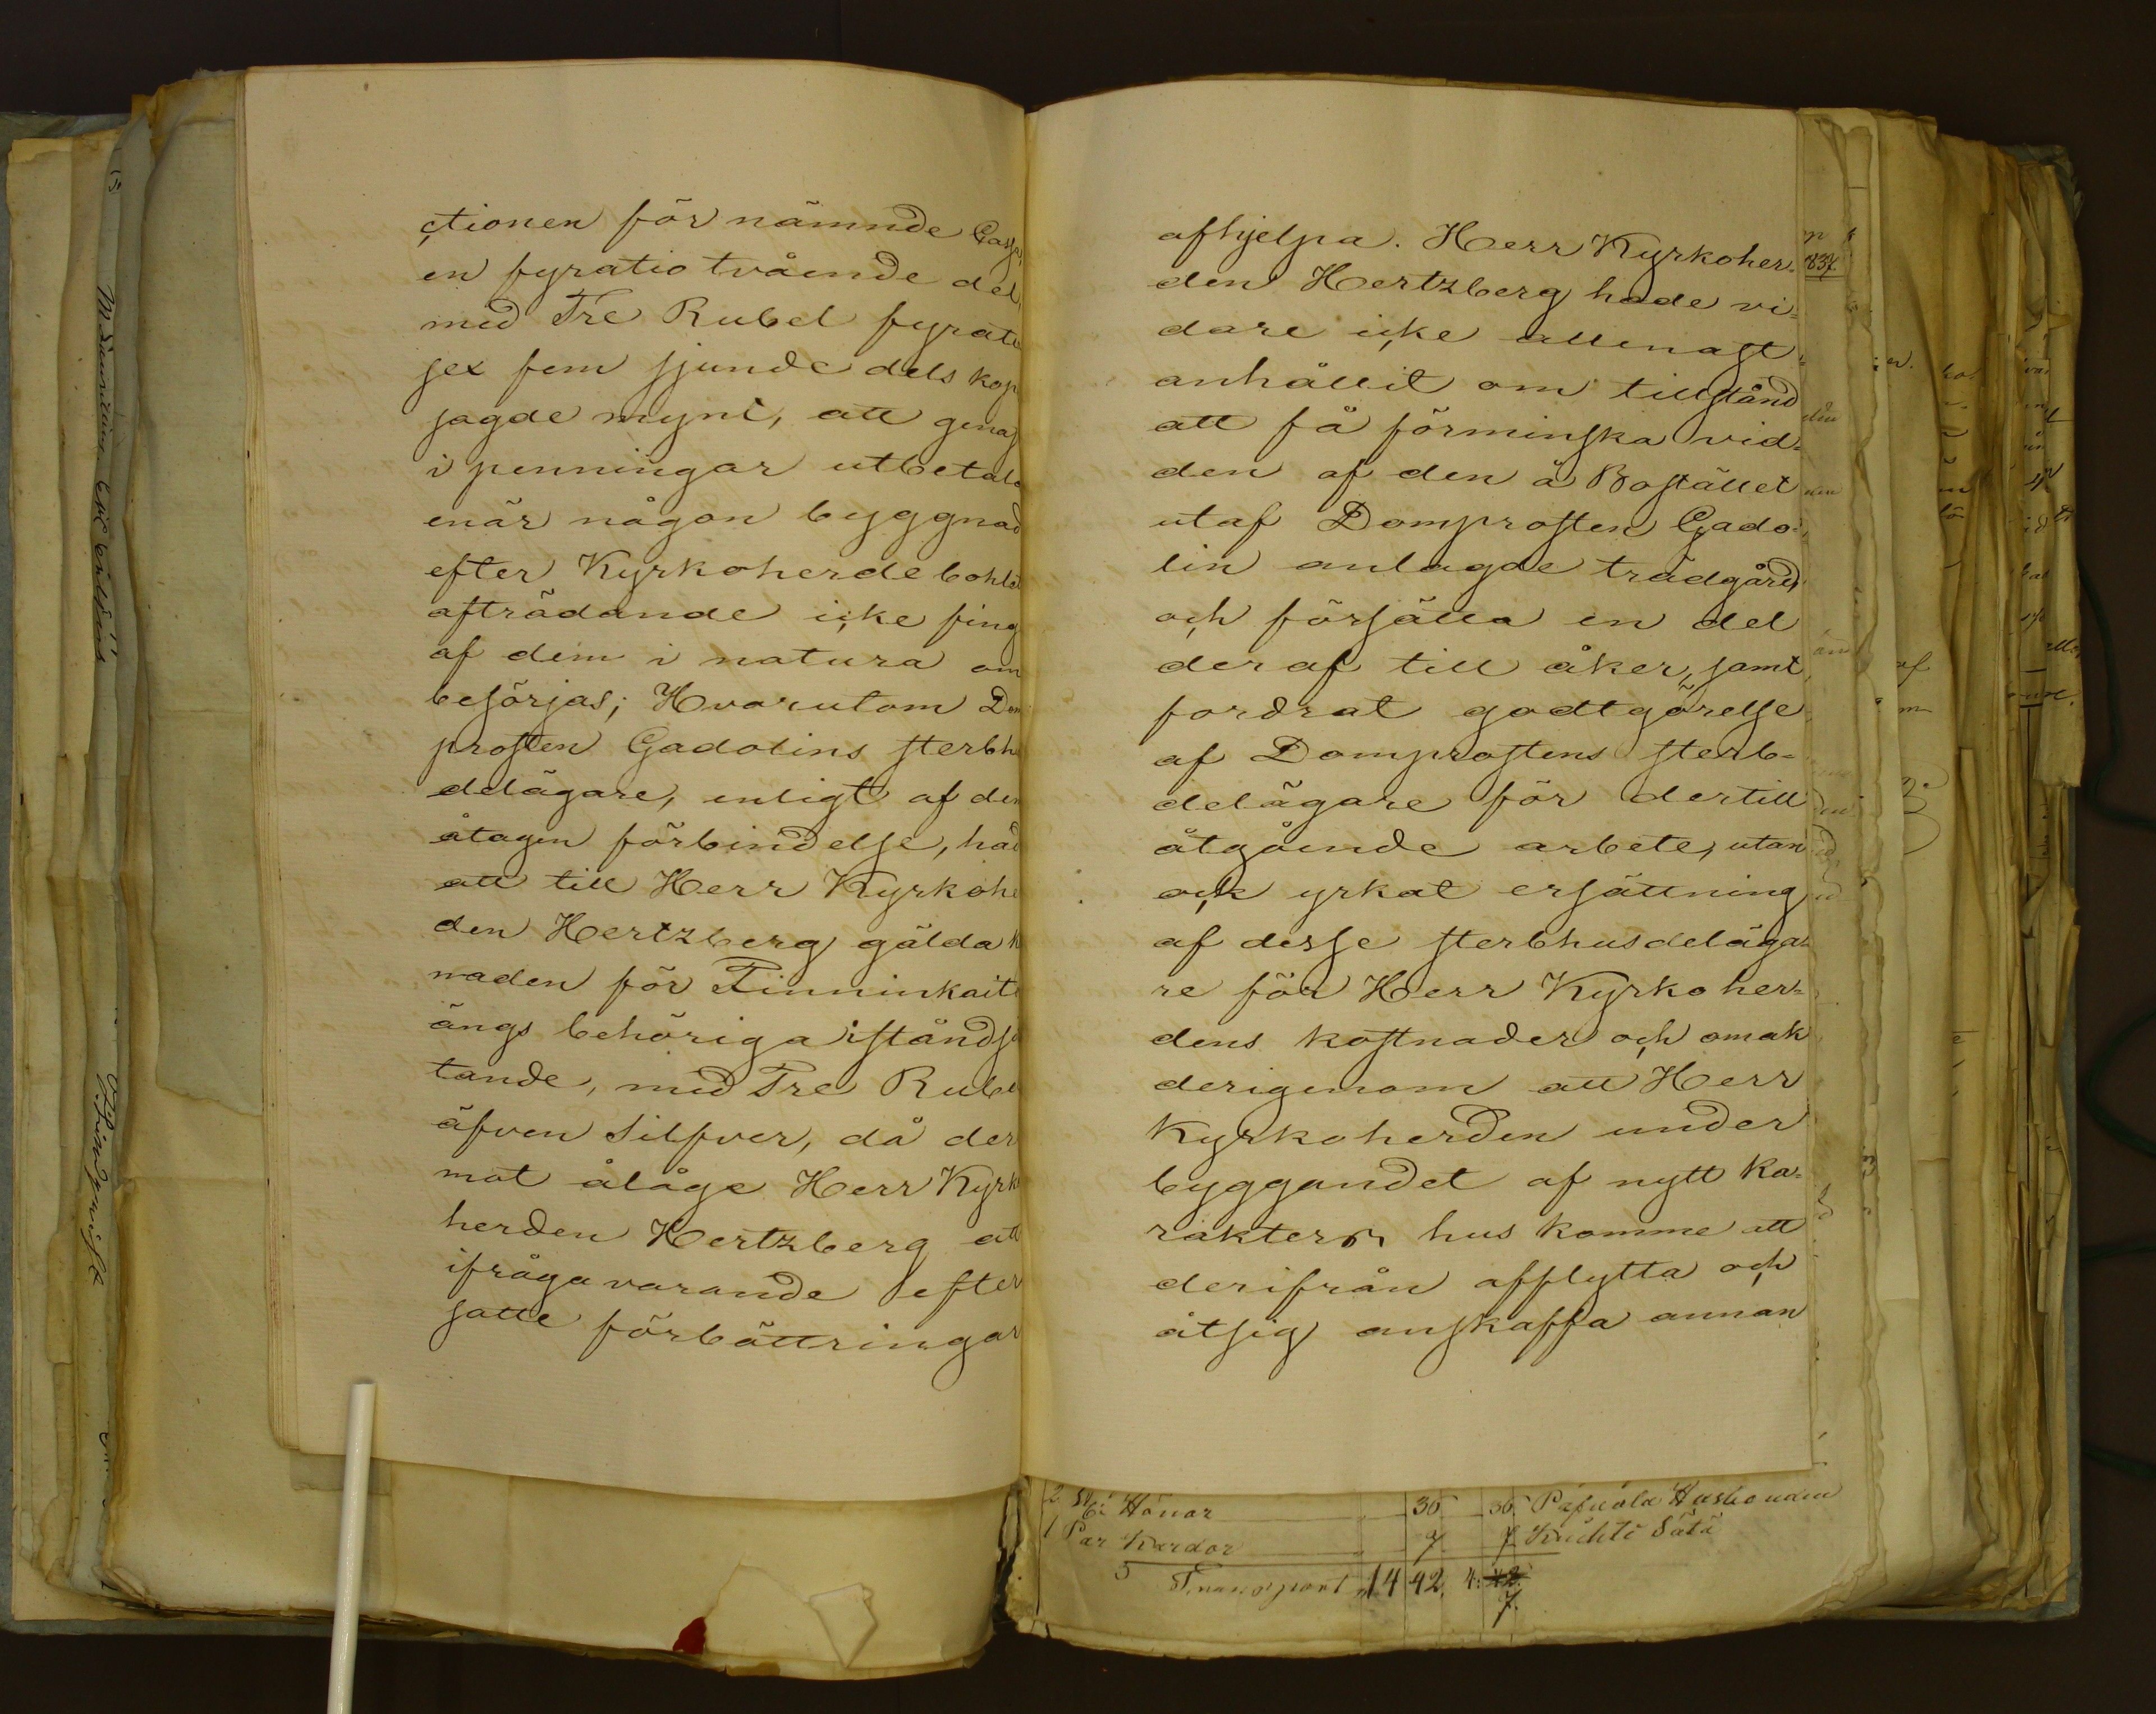 ctionen för nämnde
en fyratio tvående del,
med Tre Rubel fyratio
sex fem sjunde dels kop
sagde mynt, att genas
i penningar utbetala
enär någon byggnad
efter Kyrkoherde bohle
afträdande icke fing
af dem i natura om
besörjas; Hvarutom Dom
prosten Gadolins sterbh
delägare, enligt af dem
åtagen förbindelse, had
att till Herr Kyrkohe
den Hertzberg gälda k
naden för Tinninkaite
ängs behöriga iståndsä
tande, med Tre Rubel
äfven Silfver, då der
mot ålåge Herr Kyrko
herden Hertzberg att
ifrågavarande efter
satte förbättringar
afhjelpa. Herr Kyrkoher=
den Hertzberg hade vi=
dare icke allenast
anhållit om tillstånd
att få förminska vid=
den af den å Bostället
utaf Domprosten Gado=
lin anlagde trädgård,
och försätta en del
deraf till åker, samt
fordrat godtgörelse
af Domprostens sterb-
delägare för dertill
åtgående arbete, utan
ock yrkat ersättning
af desse sterbhusdeläga=
re för Herr Kyrkoher=
dens kostnader och omak
derigenom att Herr
Kyrkoherden under
byggandet af nytt Ka=
rakters hus komme att
derifrån afflytta och
åtsig anskaffa annan
837
2 St Hönor 36 36
1 Par Kardor 7 7
Transport 14 42. 4: 42
7.